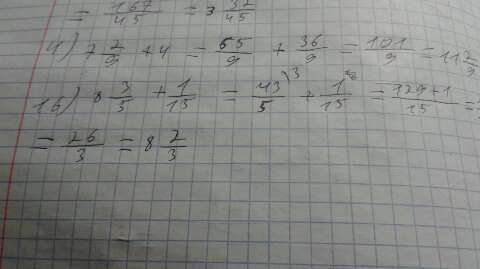 = 167/45 = 3 32/45
4) 7 2/9 + 4 = 65/9 + 36/9 = 101/9 = 11 2/9
16) 8 3/5 + 1/15 = 43/5 \3 + 1/15 = 129+1/15 =
= 26/3 = 8 2/3